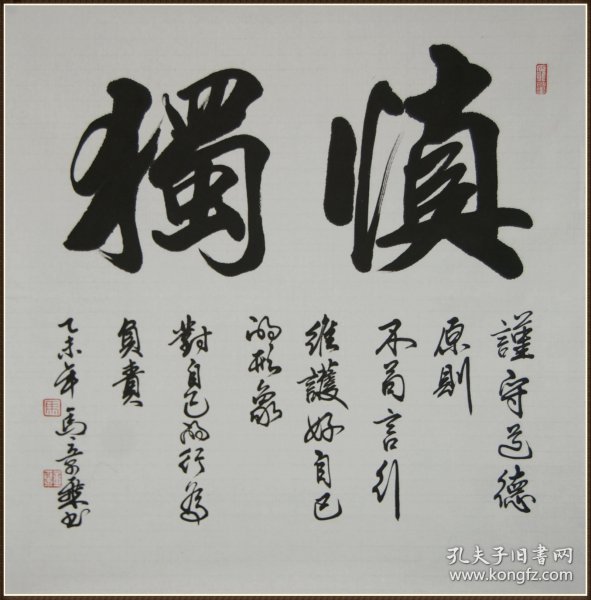 慎獨
謹守道德
原則
不苟言行
維護好自己
的形象
對自己的行為
負責
乙未年馬章乘書
孔夫子旧书网
www.kongfz.com